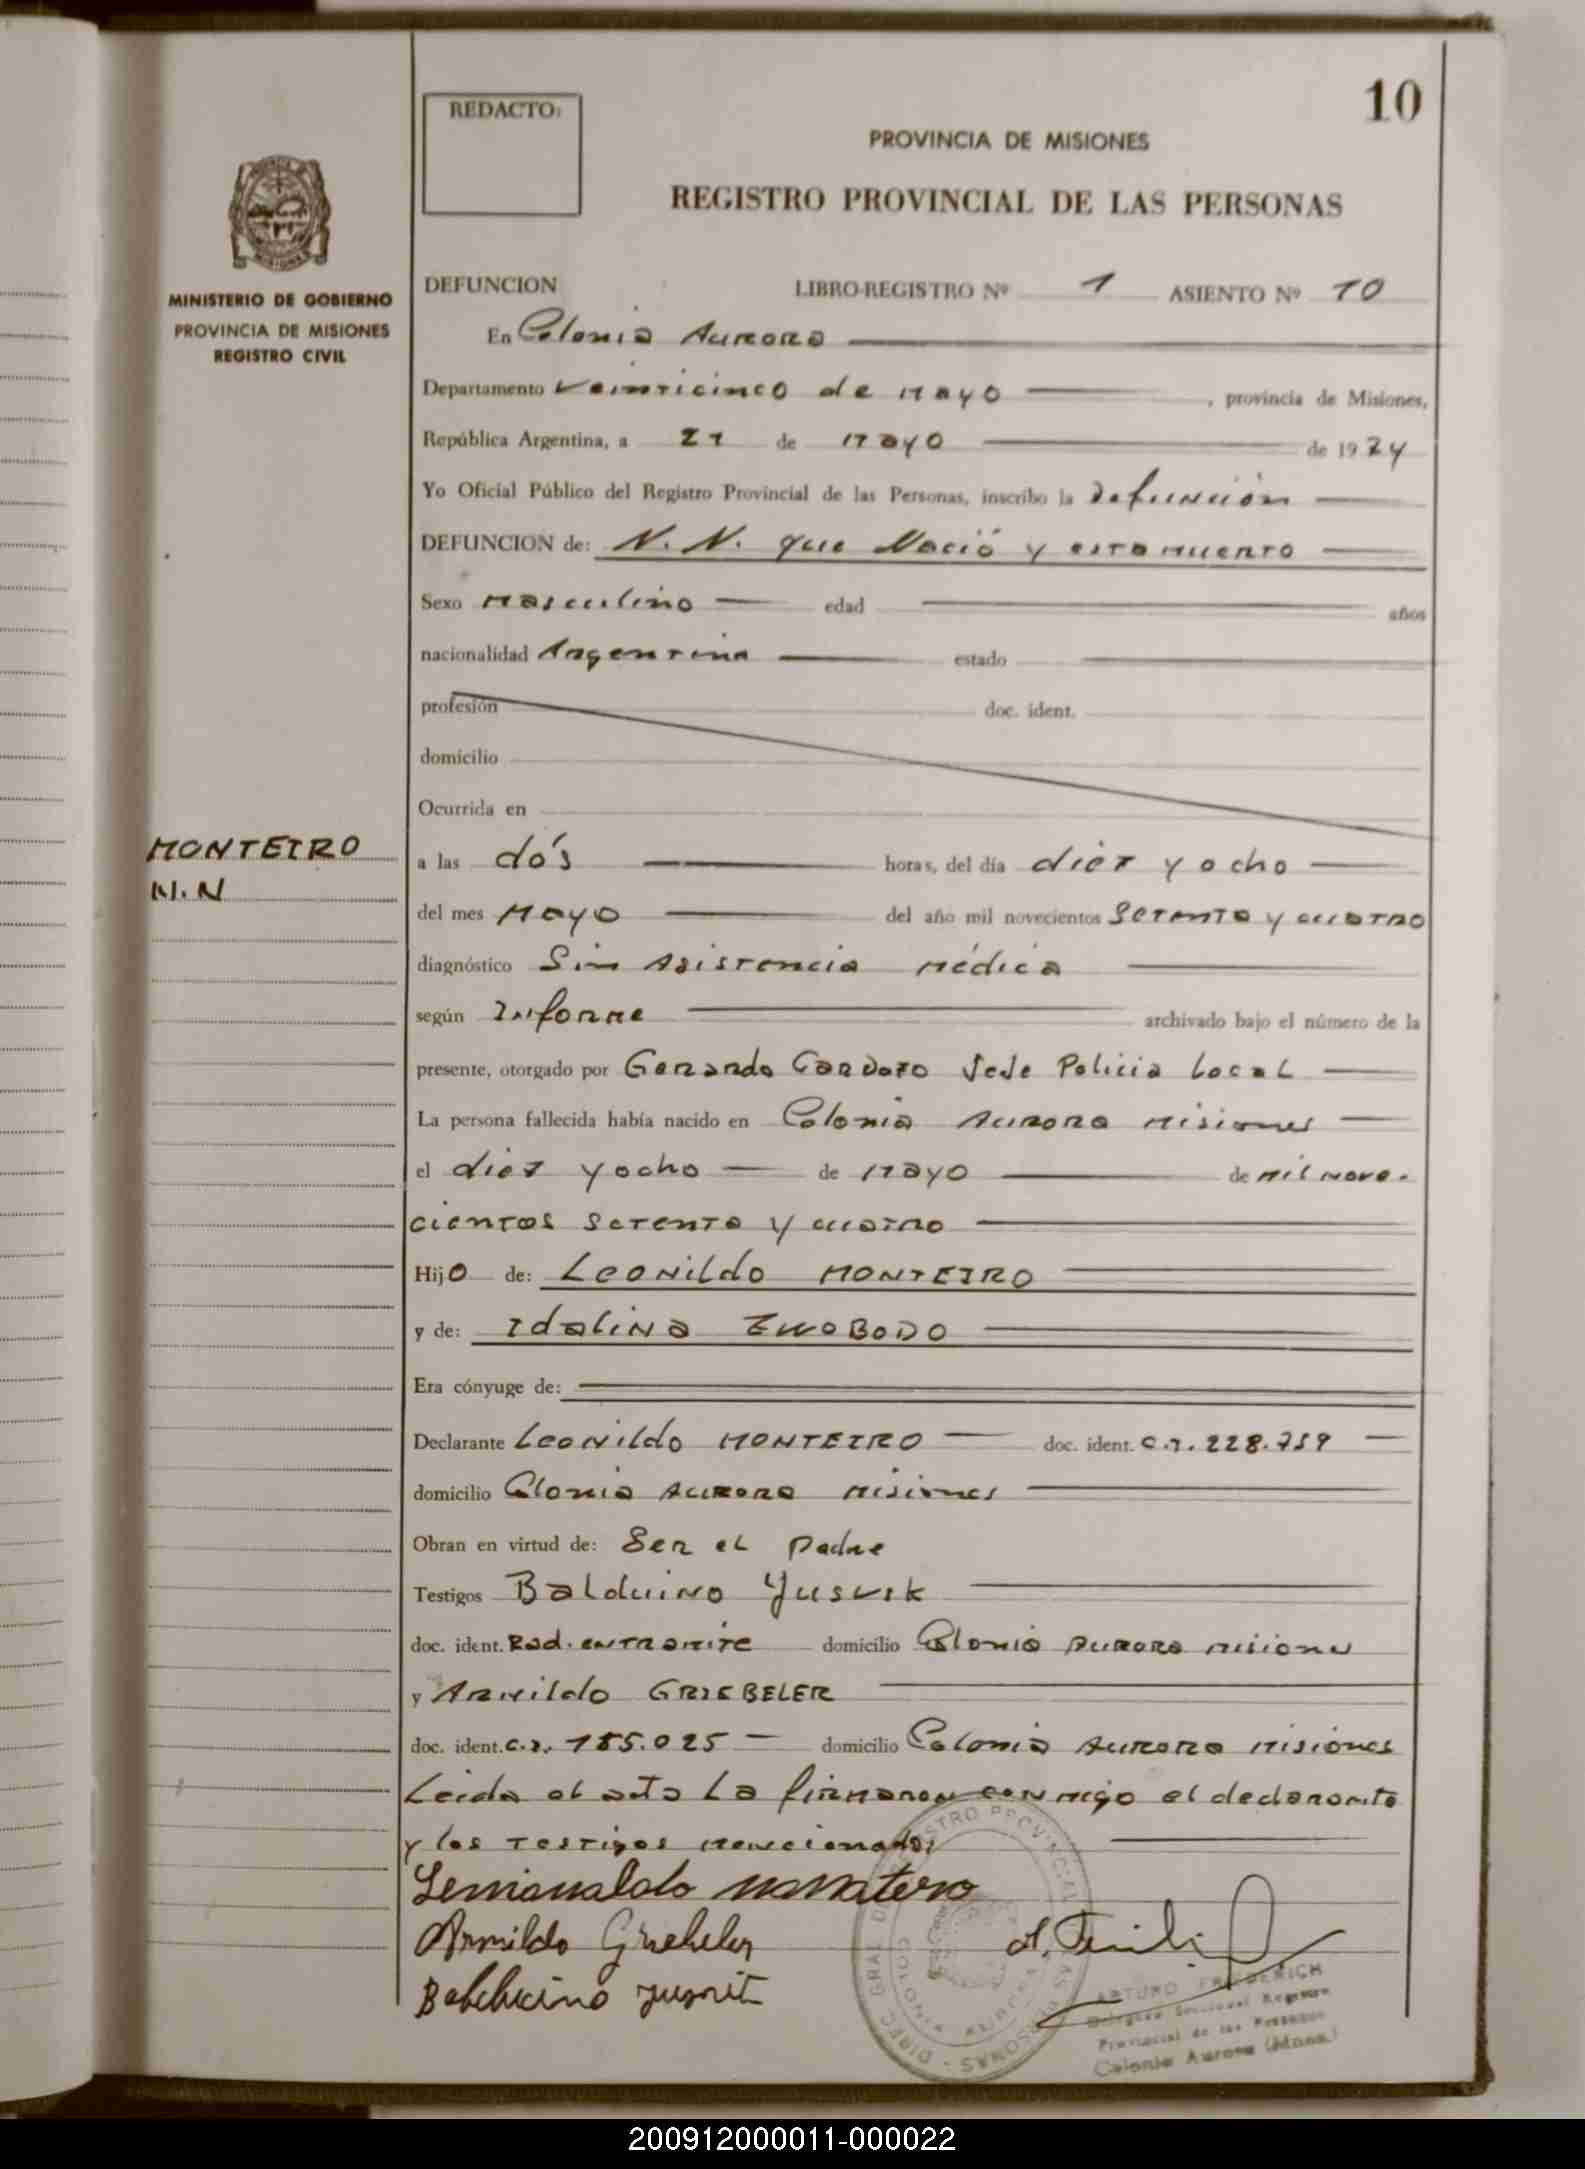 10
REDACTO:
PROVINCIA DE MISIONES
REGISTRO PROVINCIAL DE LAS PERSONAS
MINISTERIO DE GOBIERNO
PROVINCIA DE MISIONES
REGISTRO CIVIL
DEFUNCION LIBRO-REGISTRO Nº 1 ASIENTO Nº 10
En Colonia Aurora
Departamento Veinticinco de Mayo, provincia de Misiones,
República Argentina, a 21 de Mayo de 1974
Yo Oficial Público del Registro Provincial de las Personas, inscribo la Defunción
DEFUNCION de: N. N. que Nació y esta muerto
Sexo Masculino edad años
nacionalidad Argentina estado
profesión doc. ident.
domicilio
Ocurrida en
MONTEIRO
N.N
a las dós horas, del día diez y ocho
del mes Mayo del año mil novecientos Setenta y cuatro
diagnóstico Sin Asistencia Médica
según Informe archivado bajo el número de la
presente, otorgado por Gerardo Cardozo Jefe Policia Local
La persona fallecida había nacido en Colonia Aurora Misiones
el diez y ocho de Mayo de mil nove-
cientos setenta y cuatro
Hijo de: Leonildo MONTEIRO
y de: Idalina
Era cónyuge de:
Declarante Leonildo MONTEIRO doc. ident. C.I. 228.759
domicilio Colonia Aurora Misiones
Obran en virtud de: Ser el Padre
Testigos Balduino
doc. ident. Rad. en tramite domicilio Colonia Aurora Misiones
y Armildo GRIEBELER
doc. ident. C.I. 185.025 domicilio Colonia Aurora Misiones
Leida el acta La firmaron conmigo el declarante
y los testigos mencionados
Armildo Griebeler
ARTURO FRIEDERICH
Delegado Seccional Registro
Provincial de las Personas
Colonia Aurora (Mnes.)
200912000011-000022